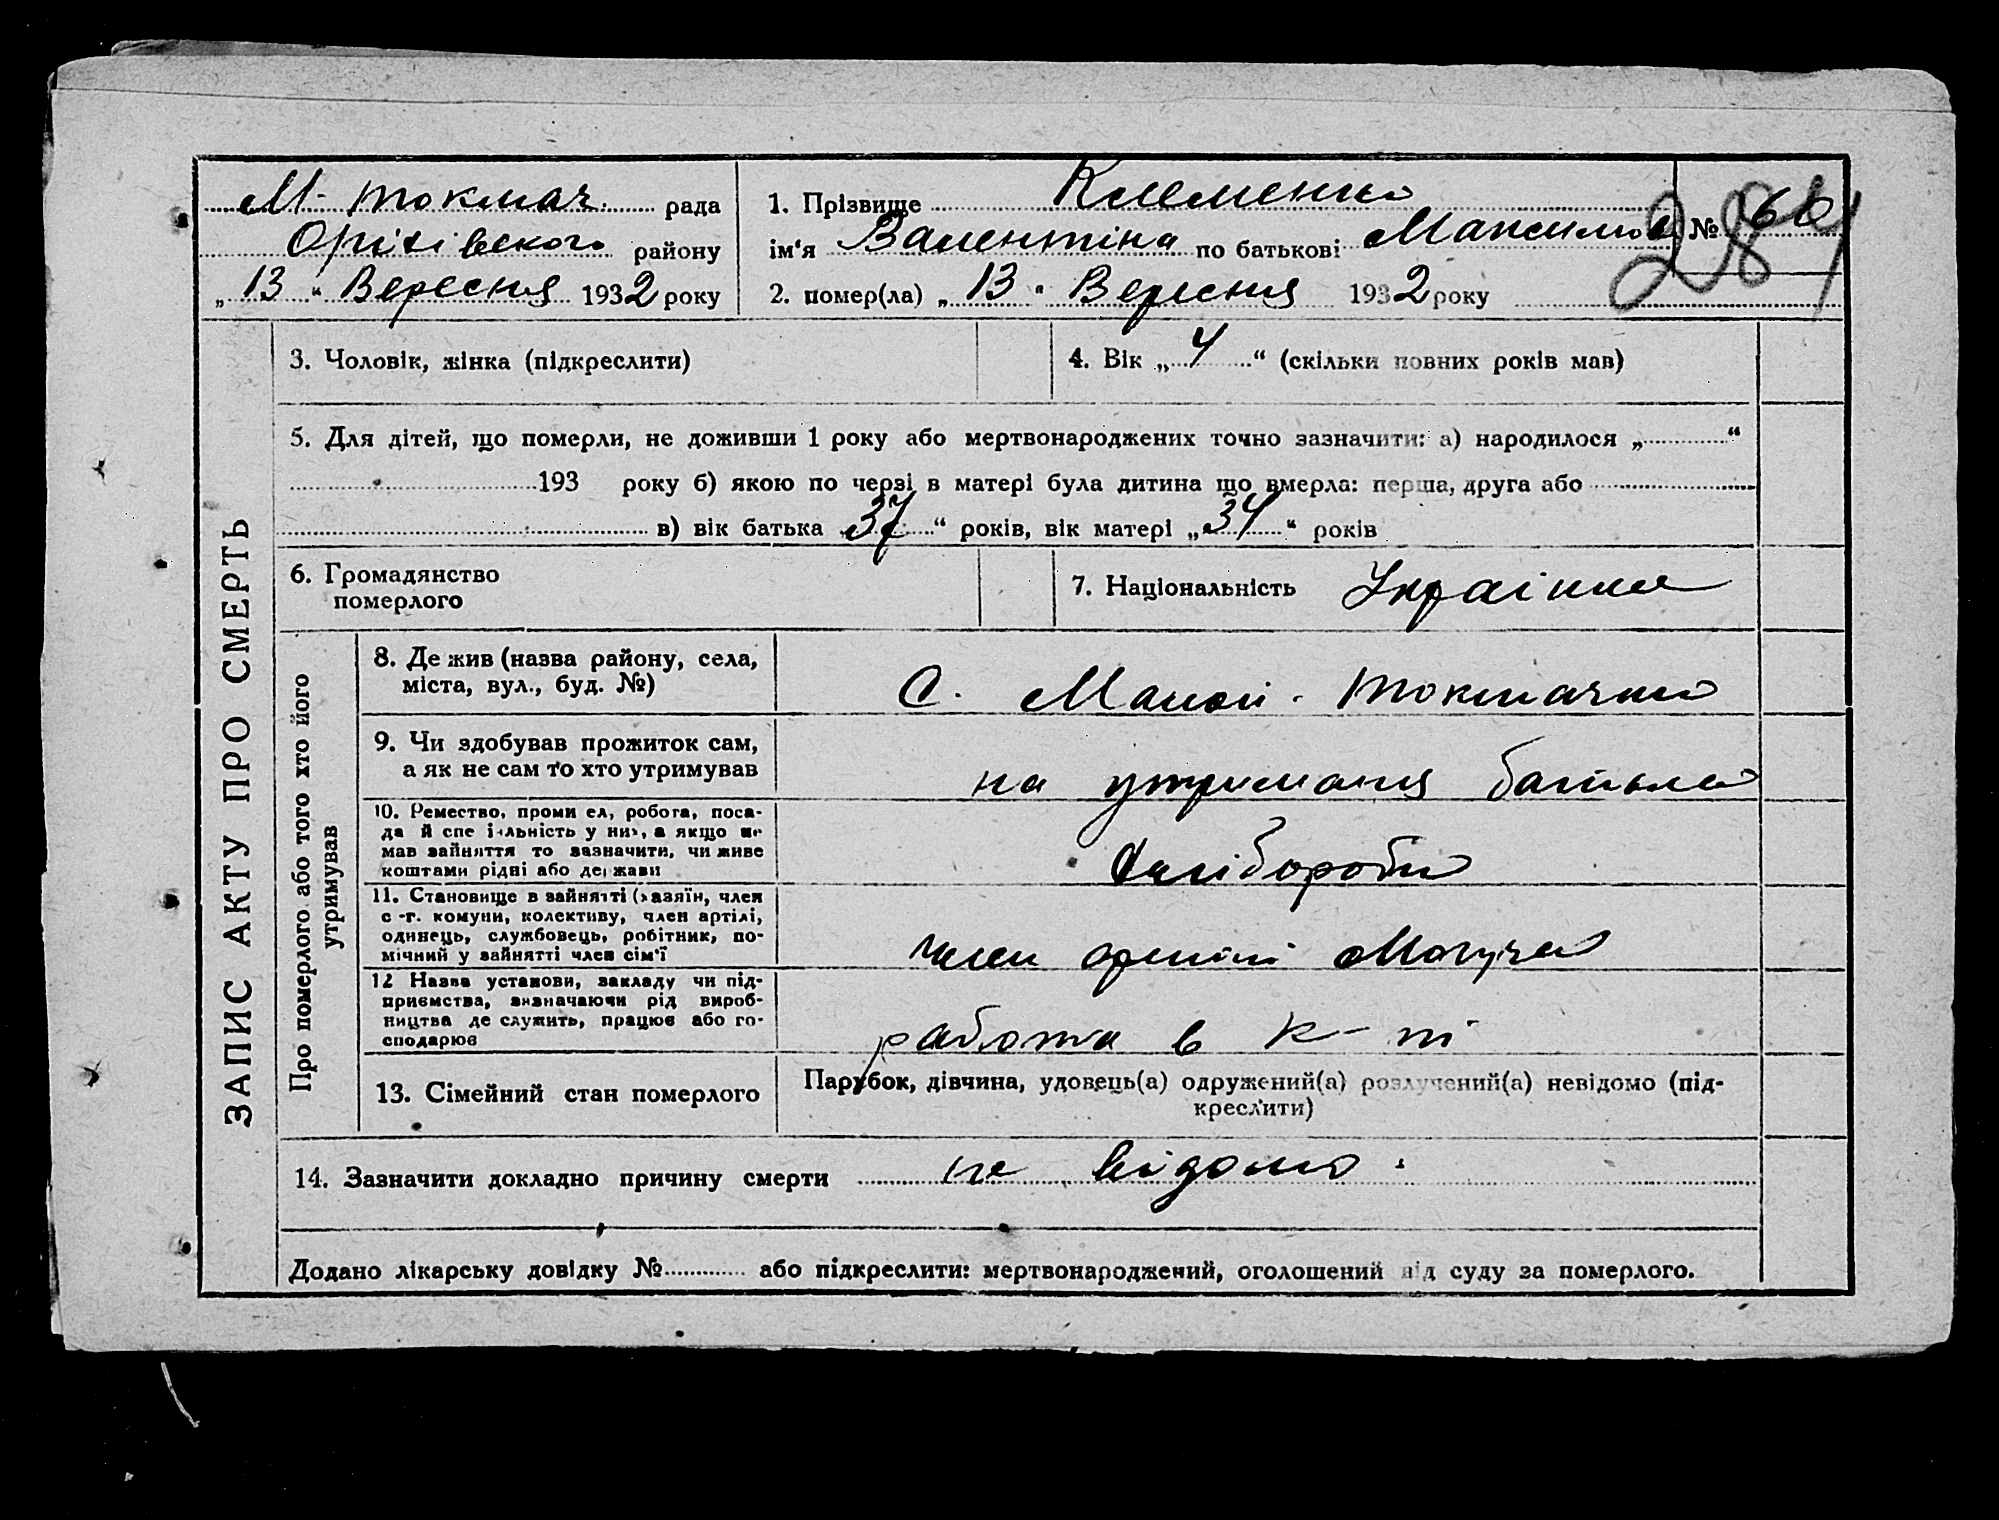 М- токмач. рада
Оріхівського району
„ 13 “ Вересня 1932 року
1. Прізвище Клеменко
ім‘я Валентіна по батькові Максимов № 66
284
2. помер(ла) „ 13 “ Вересня 1932 року
ЗАПИС АКТУ ПРО СМЕРТЬ
3. Чоловік, жінка (підкреслити)
4. Вік „ 4 “ (скільки повних років мав)
5. Для дітей, що померли, не доживши 1 року або мертвонароджених точно зазначити: а) народилося „ “
193 року б) якою по черзі в матері була дитина що вмерла: перша, друга або
в) вік батька „ 37 “ років, вік матері „ 34 “ років
6. Громадянство
померлого
7. Національність Українка
Про померлого або того хто його
утримував
8. Де жив (назва району, села,
міста, вул., буд. №)
С. Малой. токмачка
9. Чи здобував прожиток сам,
а як не сам то хто утримував
на утриманя батька
10. Ремество, проми ел, робота, поса-
да й спе іяльність у них, а якщо не
мав зайняття то зазначити, чи живе
коштами рідні або держави
хліборобы
11. Становище в зайнятті (хазяїн, член
с.-г. комуни, колективу, член артілі,
одинець, службовець, робітник, по-
мічний у зайнятті член сім‘ї
член артілі
12 Назва установи, закладу чи під-
приємства, визначаючи рід вироб-
ництва де служить, працює або го-
сподарює
работа в к-ті
13. Сімейний стан померлого
Парубок, дівчина, удовець(а) одружений(а) розлучений(а) невідомо (під-
креслити)
14. Зазначити докладно причину смерти не відомо.
Додано лікарську довідку № або підкреслити: мертвонароджений, оголошений від суду за померлого.